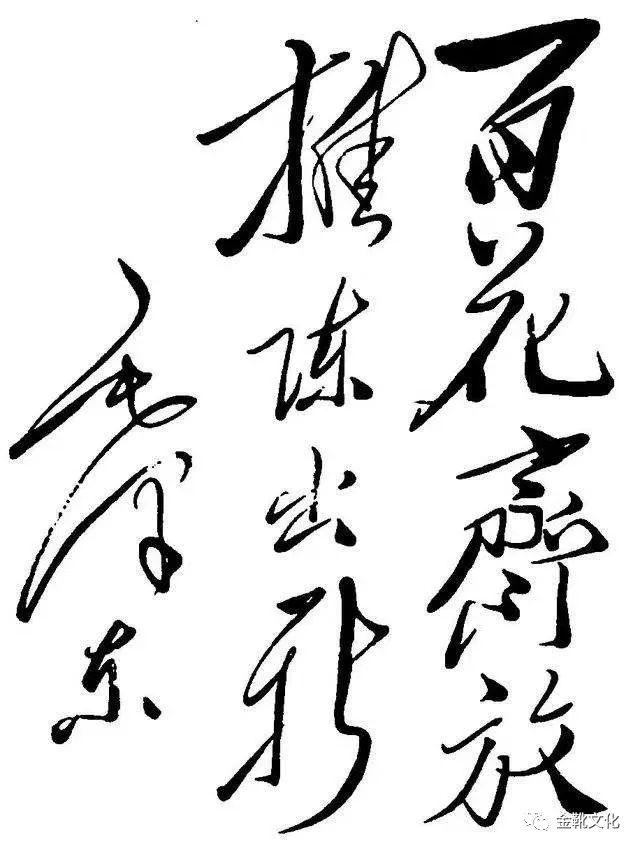 百花齊放
推陈出新
毛泽东
金靴文化